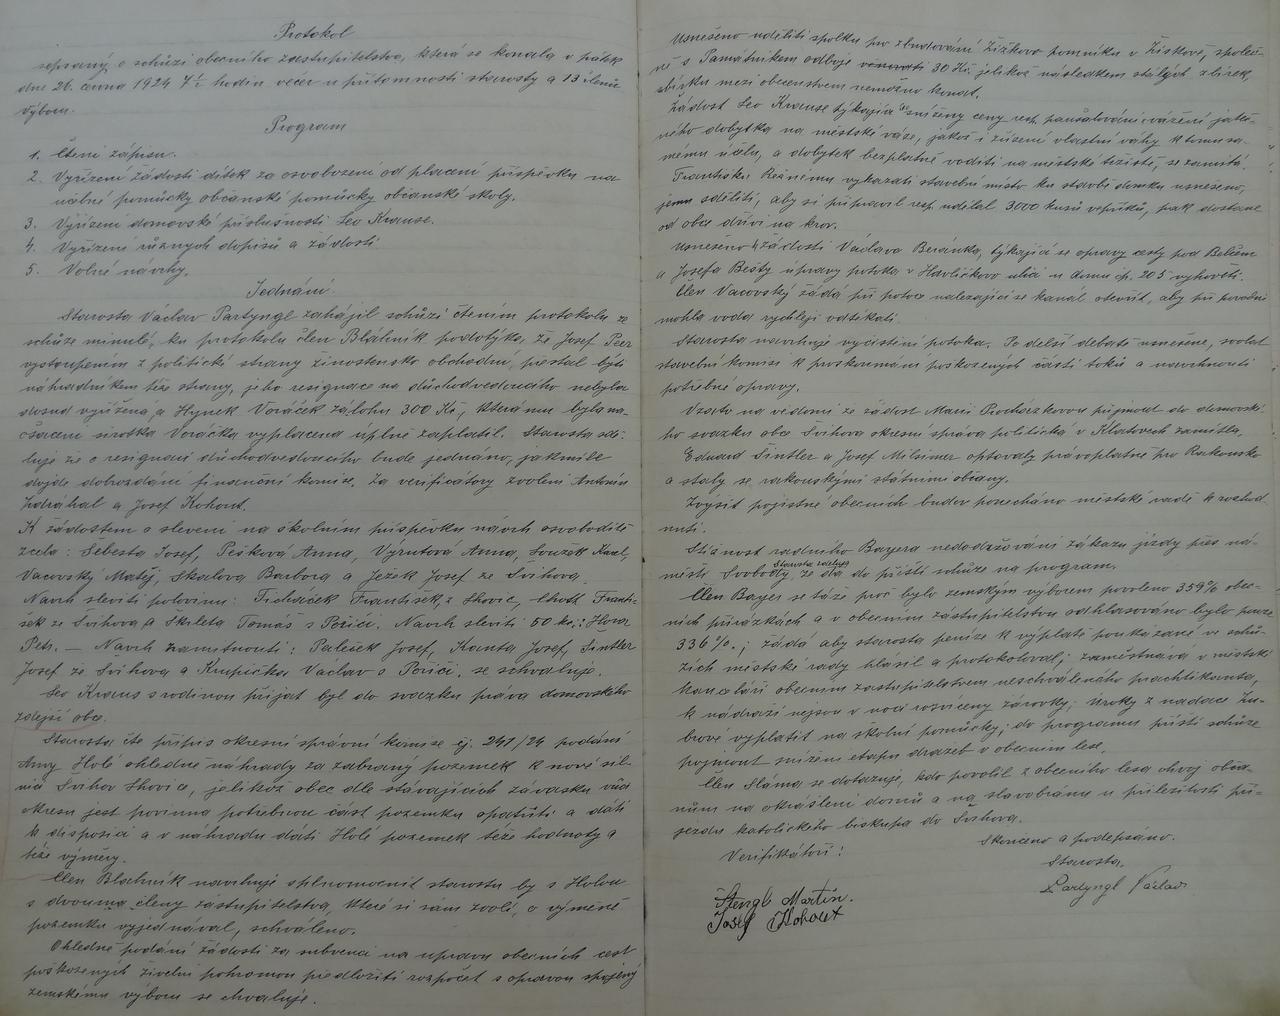 Protokol
sepsaný o schůzi obecního zastupitelstva, která se konala v pátek
dne 20. června 1924 7½ hodin večer u přítomnosti starosty a 13 členů
výboru.
Program
1. Čtení zápisu.
2. Vyřízení žádosti dítek za osvobození od placení příspěvku na
učebné pomůcky občanské pomůcky občanské školy.
3. Vyřízení domovské příslušnosti Leo Krause.
4. Vyřízení různých dopisů a žádostí
5. Volné návrhy.
Jednání.
Starosta Václav Partyngl zahájil schůzi čtením protokolu ze
schůze minulé, ku protokolu člen Blahník podotýká, že Josef Peer
vystoupením z politické strany živnostensko obchodní, přestal býti
náhradníkem téže strany, jeho resignace na důchodvedoucího nebyla
dosud vyřízena a Hynek Voráček zálohu 300 Kč, která mu byla na
ošacení sirotka Voráčka vyplacena úplně zaplatil. Starosta sdě-
luje že o resignaci důchodvedoucího bude jednáno, jakmile
dojde dobrozdání finanční komise. Za verifikátory zvoleni Antonín
Zdráhal a Josef Kohout.
K žádostem o slevení na školním příspěvku návrh osvoboditi
zcela: Šebesta Josef, Pešková Anna, Výrutová Anna, Soužek Karel,
Vacovský Matěj, Skalova Barbora a Ježek Josef ze Švihova.
Návrh sleviti polovinu: Ticháček František, z Lhovic, Chott Franti-
šek ze Švihova a Skleta Tomáš z Poříčí. Návrh sleviti 50 kč: Hora
Petr. — Návrh zamítnouti: Paleček Josef, Kounta Josef, Sintler
Josef ze Švihova a Krupička Václav z Poříčí, se schvaluje.
Leo Kraus s rodinou přijat byl do svazku práva domovského
zdejší obce.
Starosta čte přípis okresní správní komise čj. 241/24 podání
Anny Holé ohledně náhrady za zabraný pozemek k nové sil-
nici Švihov Lhovice, jelikož obec dle stávajících závazků vůči
okresu jest povinna potřebnou část pozemku opatřiti a dáti
k disposici a v náhradu dáti Holé pozemek téže hodnoty a
téže výměry.
Člen Blahník navrhuje splnomocnit starostu by s Holou
s dvouma členy zastupitelstva, které si sám zvolí, o výměně
pozemku vyjednával, schváleno.
Ohledně podání žádosti za subvenci na úpravu obecních cest
poškozených živelní pohromou předložiti rozpočet s opravou spojený
zemskému výboru se schvaluje.
Usnešeno uděliti spolku pro zbudování Žižkova pomníku v Žižkově, společ-
ně s Památníkem odboje 30 Kč, jelikož následkem stálých sbírek,
sbírku mezi obecenstvem nemožno konat.
Žádost Leo Krause týkající se snížení ceny resp. paušalování vážení jateč-
ného dobytka na městské váze, jakož i zřízení vlastní váhy k tomu sa-
mému účelu, a dobytek bezplatně voditi na městské tržiště, se zamítá.
Františku Režnému vykazati stavební místo ku stavbě domku usnešeno,
jemu sděliti, aby si připravil resp. udělal 3000 kusů vepřků, pak dostane
od obce dříví na krov.
Usnešeno žádosti Václava Beránka, týkající se opravy cesty pod Bělčem
a Josefa Bešty úpravy potoka v Havlíčkovo ulici u domu čp. 205 vyhověti.
Člen Vacovský žádá při potoce nalezající se kanál otevřít, aby při povodni
mohla voda rychleji odtékati.
Starosta navrhuje vyčistění potoka. Po delší debatě usnešeno, svolat
stavební komisi k prozkoumání poškozených částí toků a navrhnouti
potřebné opravy.
Vzato na vědomí že žádost Marii Procházkovou přijmout do domovské-
ho svazku obce Švihova okresní správa politická v Klatovech zamítla,
Eduard Sintler a Josef Milsimer optovaly právoplatně pro Rakousko
a staly se rakouskými státními občany.
Zvýšit pojistné obecních budov ponecháno městské radě k rozhod-
nutí.
Stížnost radního Bayera nedodržování zákazu jízdy přes ná-
městí Svobody, Starosta slibuje že dá do příští schůze na program.
Člen Bayer se táže proč bylo zemským výborem povoleno 359% obec-
ních přirážkách a v obecním zastupitelstvu odhlasováno bylo pouze
336%; žádá aby starosta peníze k výplatě poukázané ve schů-
zích městské rady hlásil a protokoloval; zaměstnává v městské
kanceláři obecním zastupitelstvem neschváleného prachtikanta,
k nádraží nejsou v noci rozsvíceny žárovky; úroky z nadace Zu-
brové vyplatit na školní pomůcky; do programu příští schůze
pojmout snížení etapu dražeb v obecním lese.
Člen Sláma se dotazuje, kdo povolil z obecního lesa chvoj obča-
nům na okrášlení domů a na slavobránu u příležitosti pří-
jezdu katolického biskupa do Švihova.
Skončeno a podepsáno.
Verifikátoři:
Starosta.
Partyngl Václav
Štengl Martin.
Josef Kohout